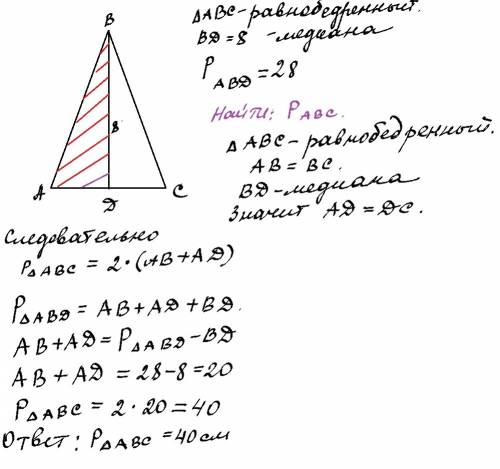 B
8
A
D
C
ΔABC-равнобедренный.
BD=8 -медиана
P ABD =28
Найти: P ABC.
ΔABC-равнобедренный.
AB = BC.
BD-медиана
Значит AD = DC.
Следовательно
PΔABC = 2·(AB+AD)
PΔABD = AB+AD+BD.
AB+AD= PΔABD-BD
AB+AD = 28-8=20
PΔABC = 2·20=40
Ответ: PΔABC =40см